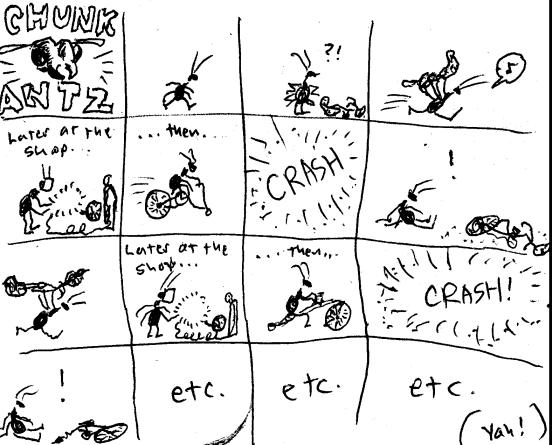 CHUNK
ANTZ
?!
♪
Later at the
shop...
...then...
CRASH
!
Later at the
shop...
....then...
CRASH!
!
etc.
etc.
etc.
(Yah!)